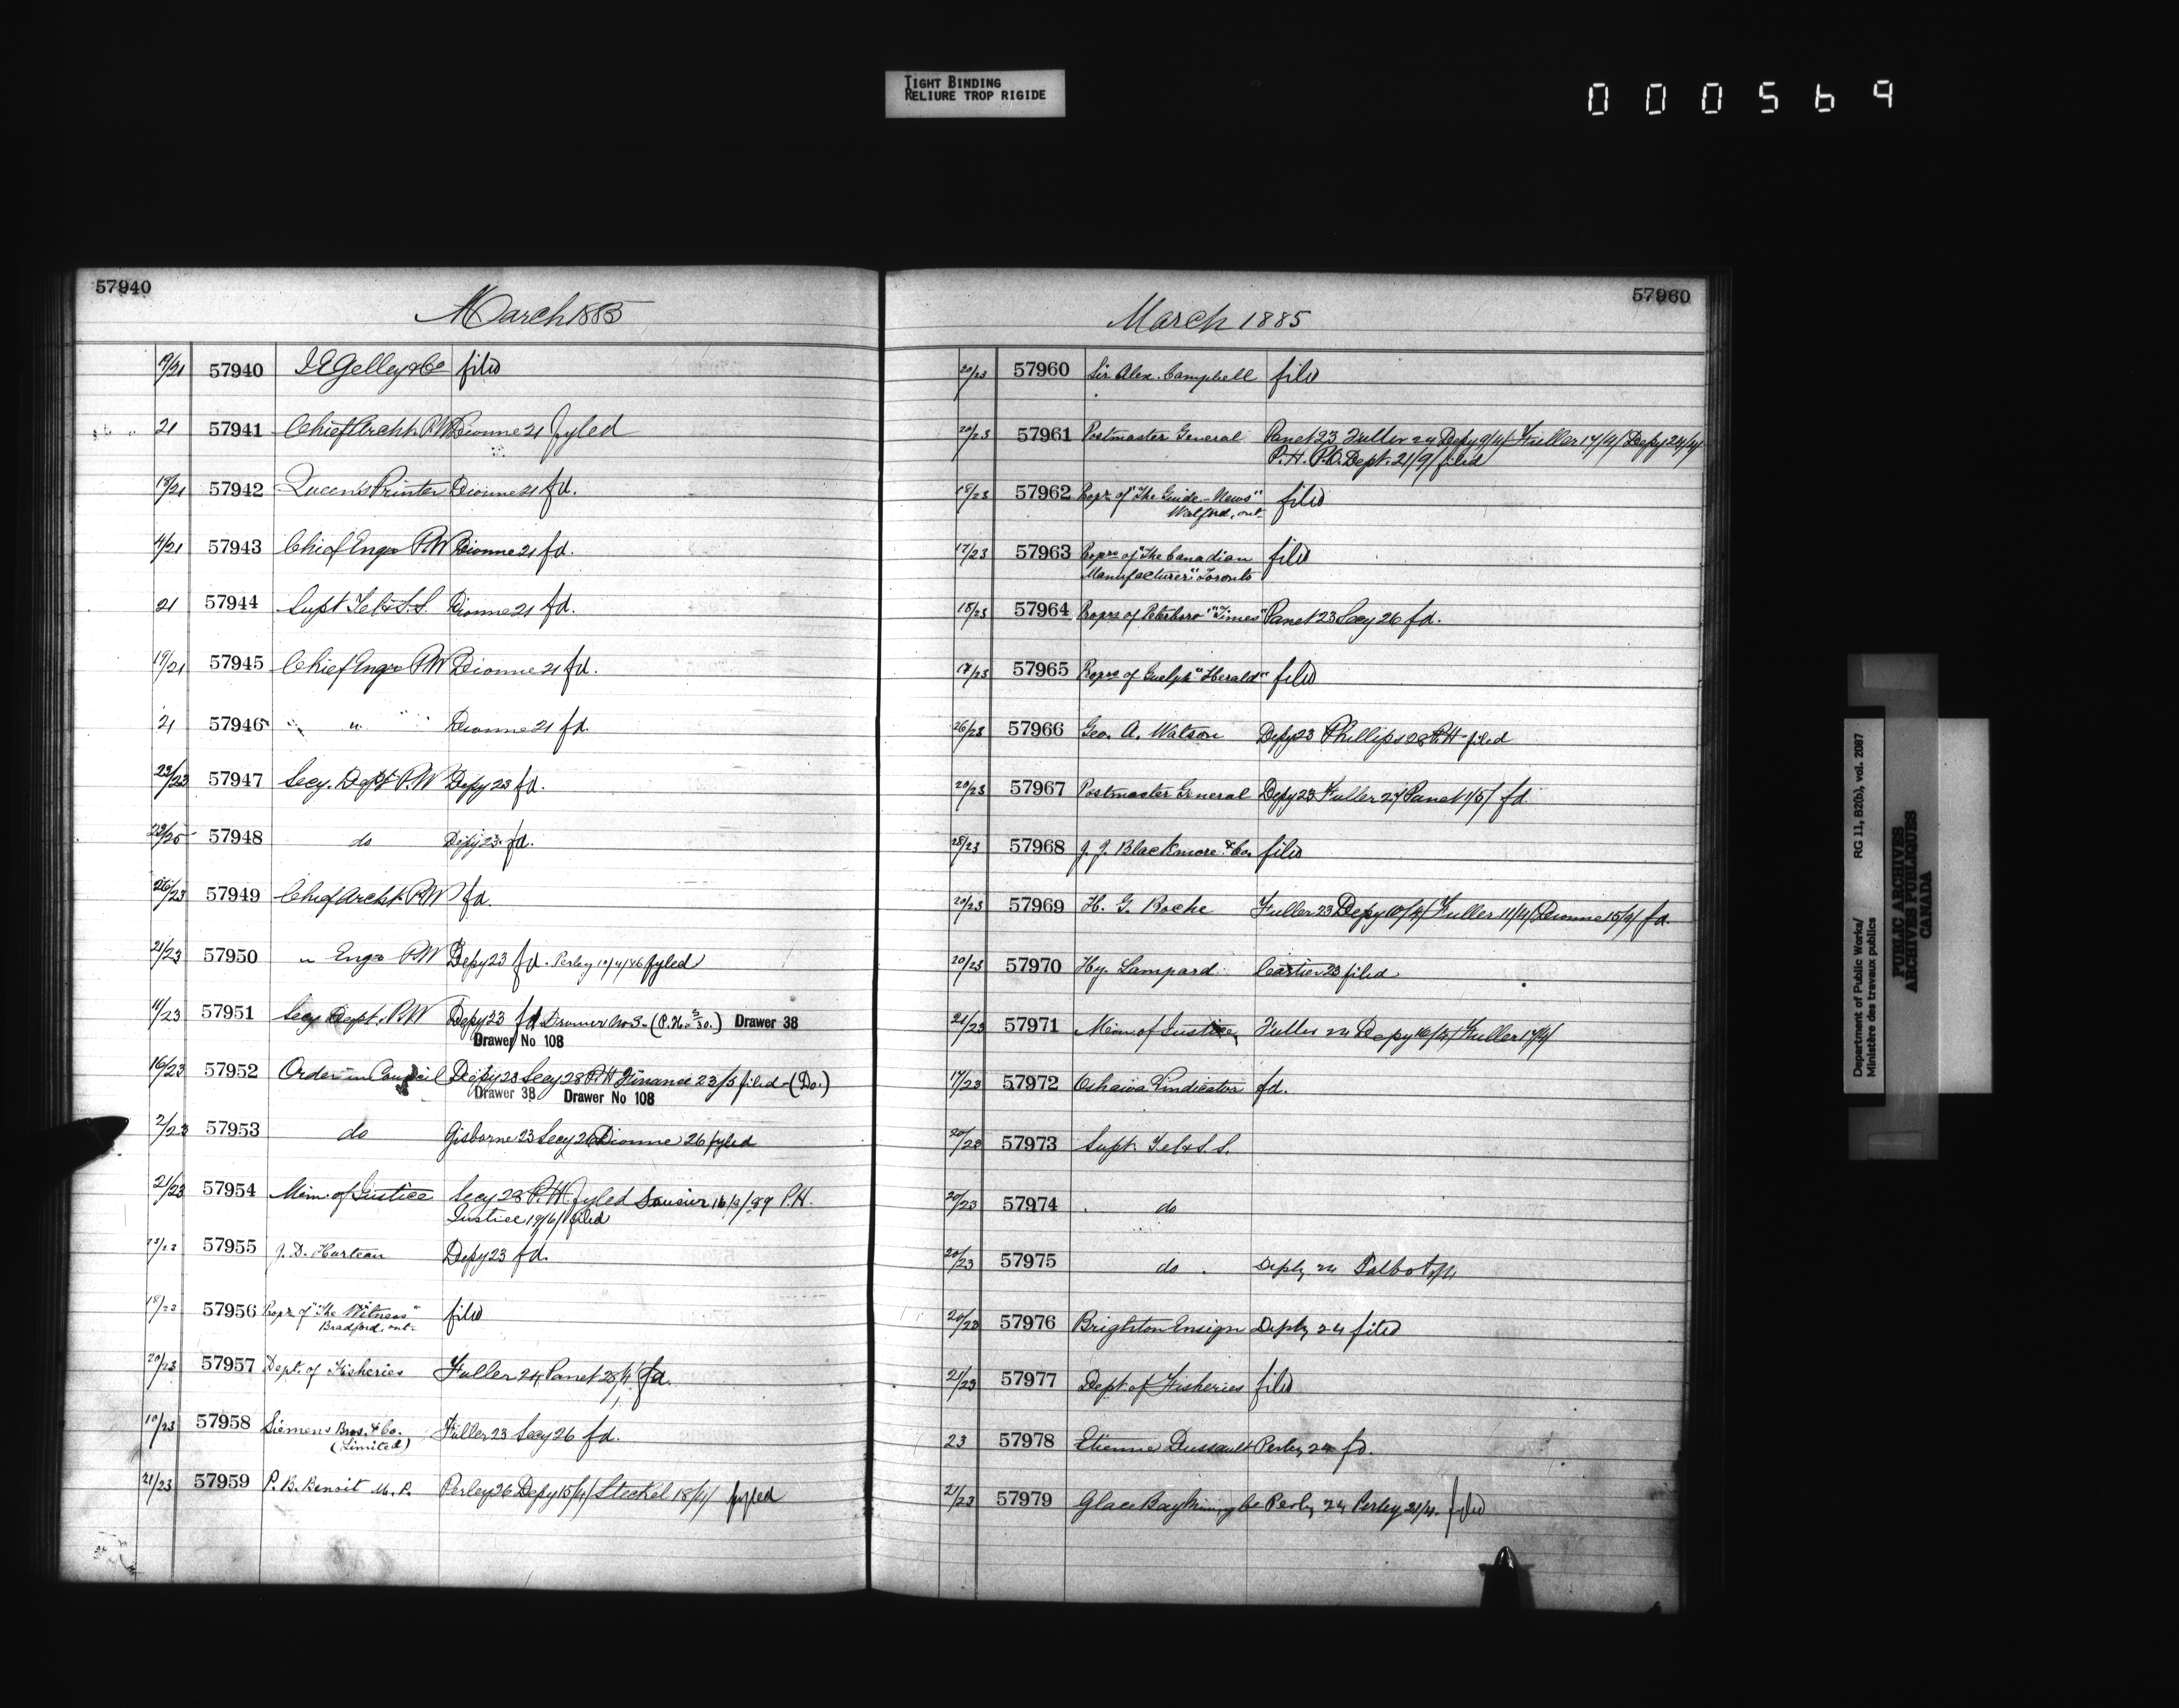 TIGHT BINDING
RELIURE TROP RIGIDE
000569
57940
March 1885
19/21 57940 J E Gelley & Co filed
21 57941 Chief Archt. P.W Dionne 21 fyled
18/21 57942 Queen's Printer Dionne 21 fd.
4/21 57943 Chief Engr P.W Dionne 21 fd.
21 57944 Supt Tel & S.S. Dionne 21 fd.
19/21 57945 Chief Engr P.W Dionne 21 fd.
21 57946 " " " Dionne 21 fd.
23/23 57947 Secy. Dept P.W Depy 23 fd.
57948 do Depy 23 fd.
57949 Chief Archt. P.W fd.
21/23 57950 " Engr P.W Depy 23 fd. Perley 10/4/86 fyled
11/23 57951 Secy Dept. P.W Depy 23 fd Drawer No 3. Drawer 38
Drawer No 108
16/23 57952 Order in Council Depy 23 Secy 28 P.H Finance 23/5 filed - (Do.)
Drawer 38 Drawer No 108
2/23 57953 do Gisborne 23 Secy 26 Dionne 26 fyled
21/23 57954 Min. of Justice Secy 28 P.H. fyled P.H.
Justice 19/6/ filed
57955 J. D. Hurteau Depy 23 fd.
18/23 57956 Propr. of "The Witness" filed
Bradford, ont.
20/23 57957 Dept. of Fisheries Fuller 24 Panet 28/4/ fd.
10/23 57958 Siemens Bros. & Co. Fuller 23 Secy 26 fd.
(Limited)
21/23 57959 P. B. Benoit M. P. Perley 26 Depy 15/4/ Steckel 18/4/ fyled
57960
March 1885
20/23 57960 Sir Alex. Campbell filed
20/23 57961 Postmaster General Panet 23 Fuller 24 Depy 9/4/ Fuller 17/4/ Depy 24/4/
P.H. P.O. Dept. 21/9/ filed
18/23 57962 Propr. of "The Guide-News" filed
Watford, ont.
17/23 57963 Proprs of "The Canadian filed
Manufacturer" Toronto
18/23 57964 Proprs of Peterboro' "Times" Panet 23 Secy 26 fd.
57965 Proprs of Guelph "Herald" filed
57966 Geo. A. Watson Depy 23 Phillips 28 P.H filed
20/23 57967 Postmaster General Depy 23 Fuller 27 Panet 1/5/ fd
57968 J. J. Blackmore & Co. filed
20/23 57969 H. G. Roche Fuller 23 Depy 10/4/ Fuller 11/4/ Dionne 15/4/ fd.
20/23 57970 Hy. Lampard Cartier 23 filed
21/23 57971 Min of Justice Fuller 24 Depy 16/4/ Fuller 17/4/
17/23 57972 Oshawa Vindicator fd.
20/23 57973 Supt. Tel & S. S.
20/23 57974 do
20/23 57975 do Deply 24 Talbot
20/23 57976 Brighton Ensign Deply 24 filed
21/23 57977 Dept of Fisheries filed
23 57978 Etienne Dussault Perley 24 fd.
21/23 57979 Glace Bay Mining Co Perley 24 Perley 21/4. fyled
Department of Public Works/ RG 11, B2(b), vol. 2087
Ministère des travaux publics
PUBLIC ARCHIVES
ARCHIVES PUBLIQUES
CANADA